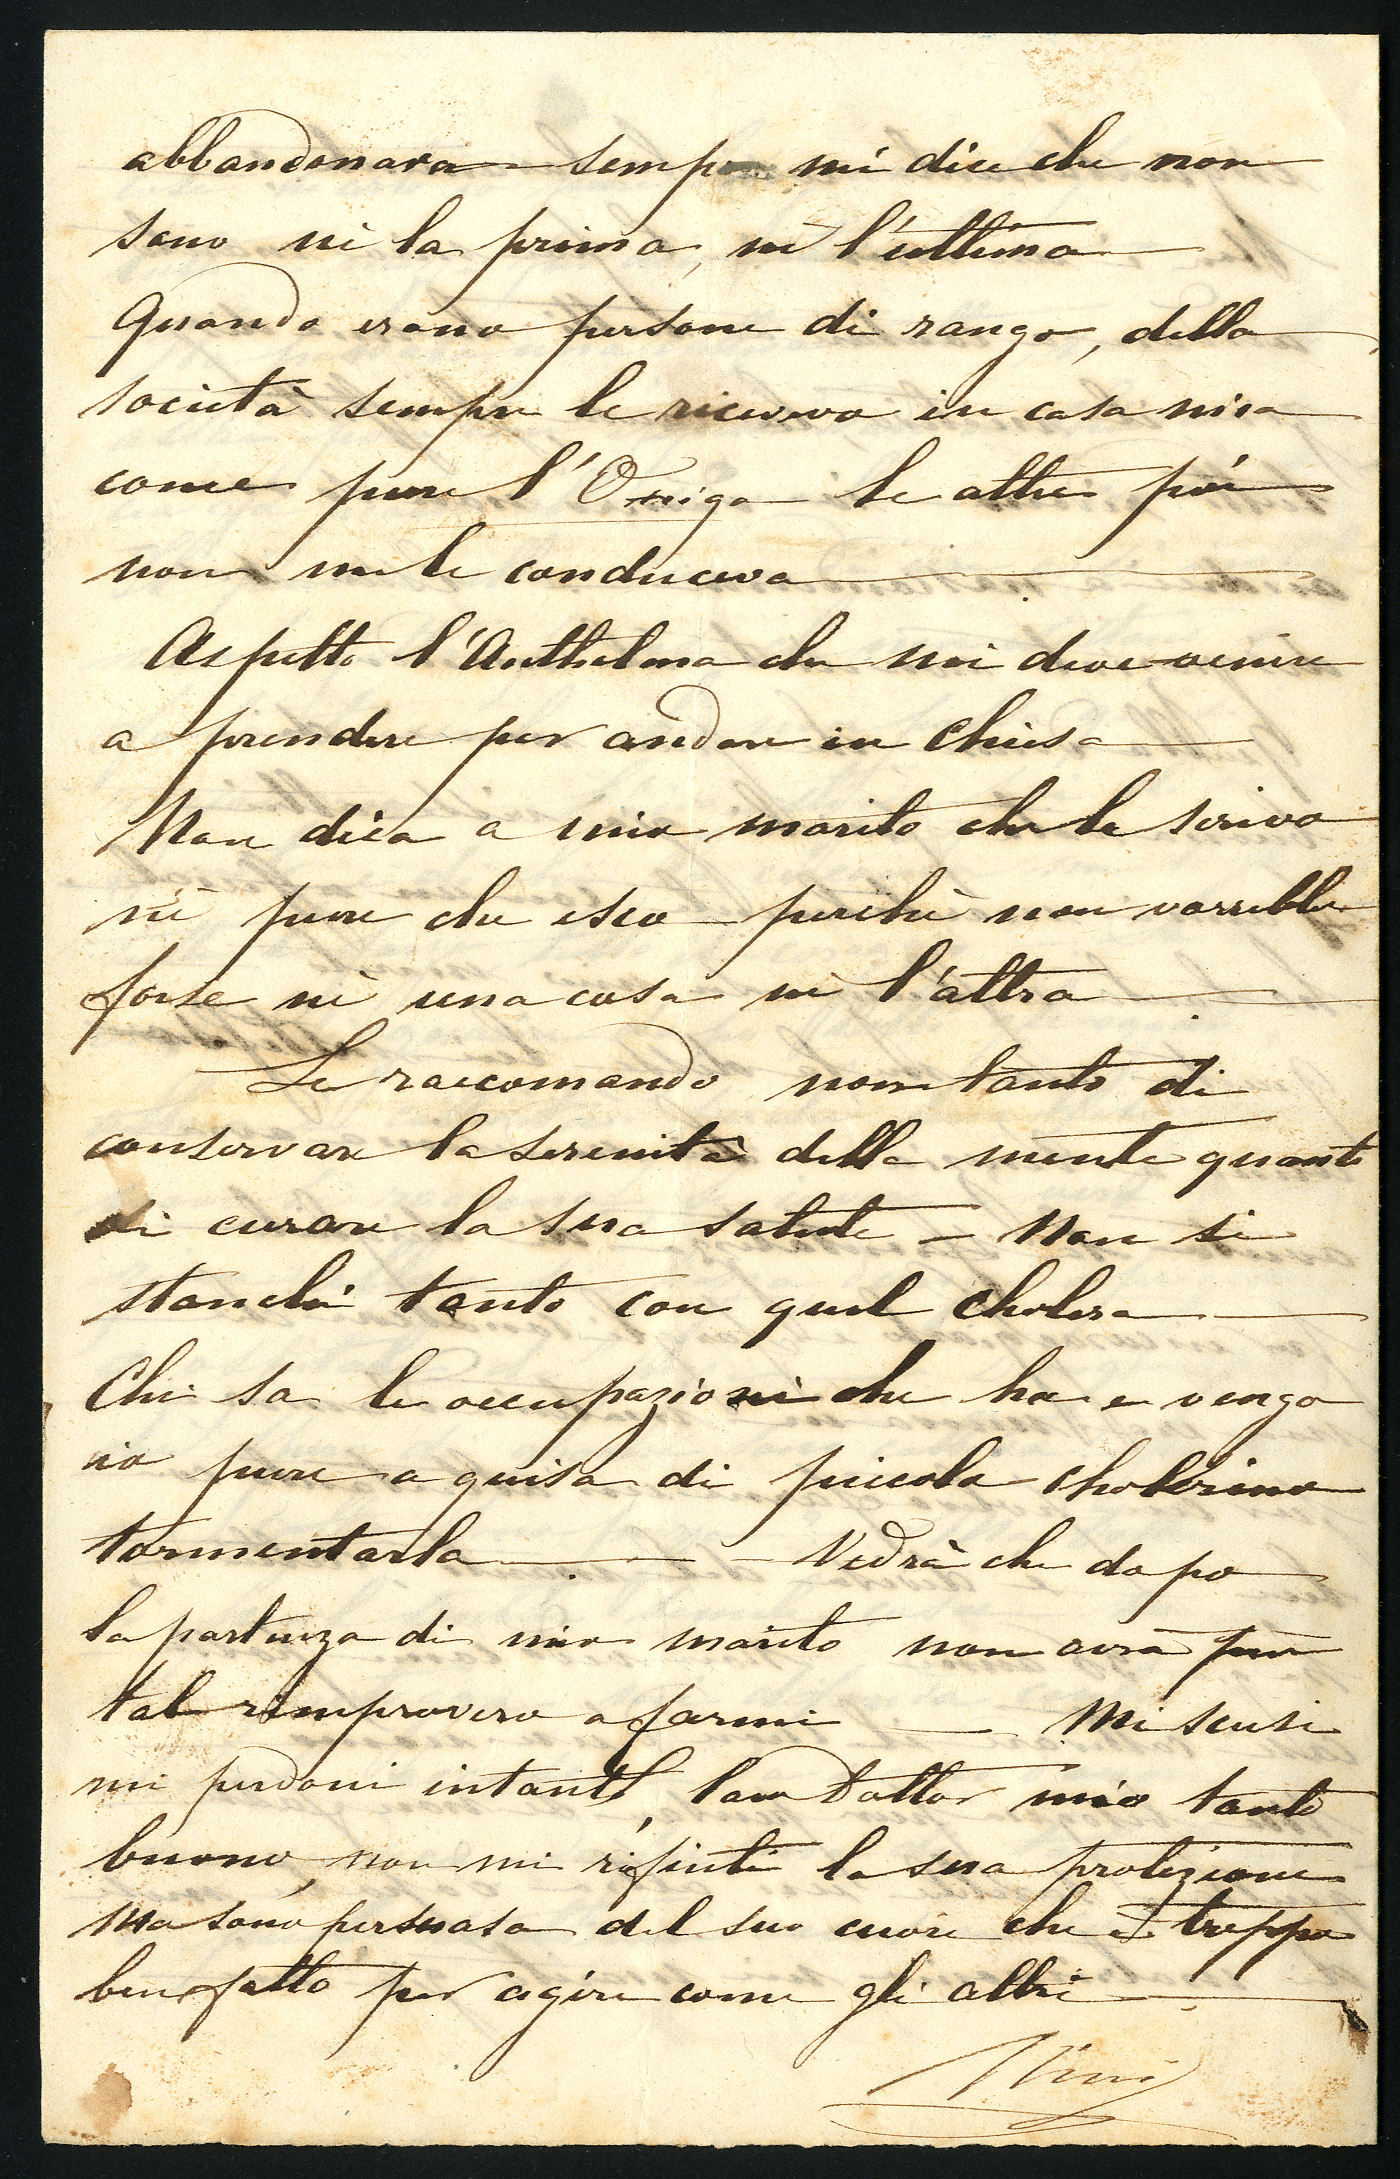 abbandonava sempre mi dice che non
sono nè la prima, nè l'ultima
Quando erano persone di rango, della
società sempre le ricevevo in casa mia
come pure l'Oniga le altre poi
non me le conduceva
Aspetto l'Anthelma che mi deve venire
a prendere per andare in Chiesa
Non dica a mio marito che le scrivo
nè pure che esco perchè non vorrebbe
forse nè una cosa nè l'altra
Le raccomando non tanto di
conservare la serenità della mente quanto
di curare la sua salute – Non si
stanchi tanto con quel cholera
Chi sa le occupazioni che ha e vengo
io pure a guisa di piccola cholerina
tormentarla — Vedrà che dopo
la partenza di mio marito non avrà più
tal rimprovero a farmi — Mi scusi
mi perdoni intanto, caro Dottor mio tanto
buono, non mi rifiuti la sua protezione
ma sono persuasa del suo cuore che è troppo
ben fatto per agire come gli altri
Nini